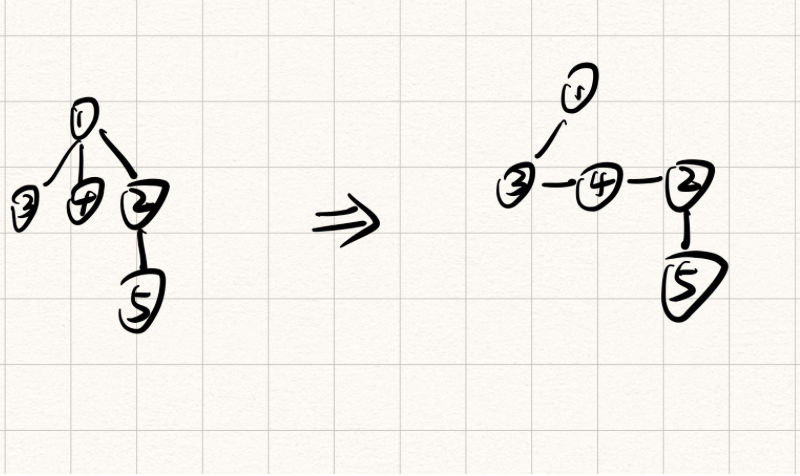 1
3 4 2
5
⇒
1
3 4 2
5